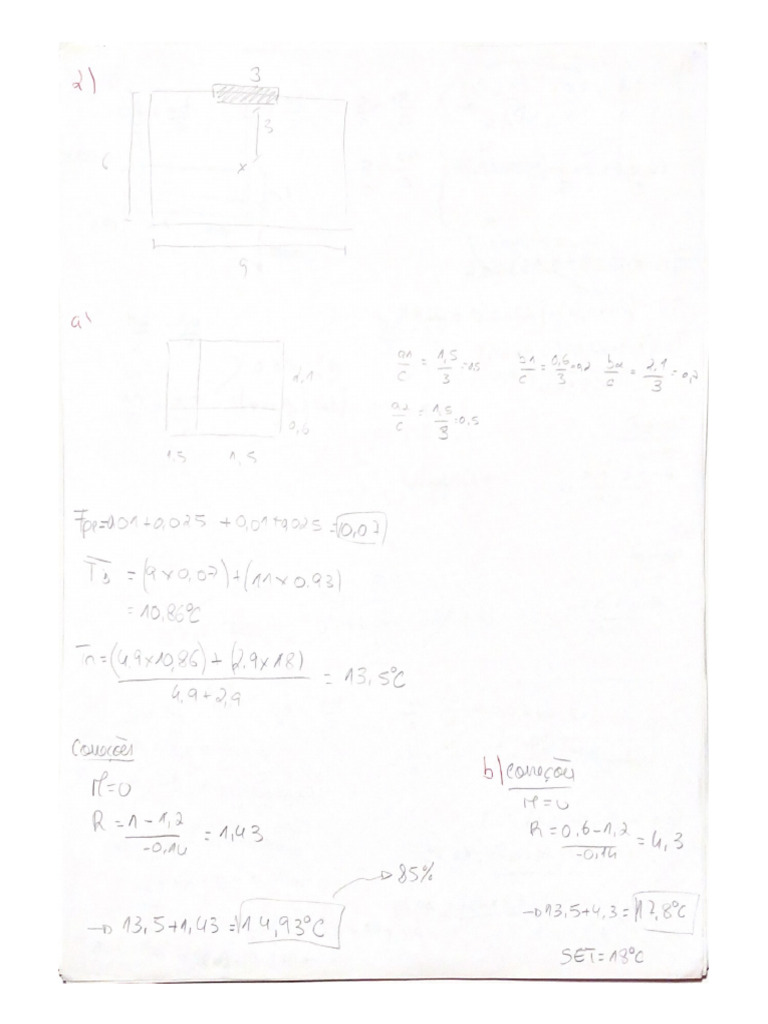 2)
3
3
x
6
9
a)
2,1
0,6
1,5 1,5
a1/c = 1,5/3 = 0,5 b1/c = 0,6/3 = 0,2 b2/c = 2,1/3 = 0,7
a2/c = 1,5/3 = 0,5
Fpe = 0,01 + 0,025 + 0,01 + 0,025 = 0,07
T3 = (9 x 0,07) + (11 x 0,93)
= 10,86°C
Tn = (4,9 x 10,86) + (2,9 x 18) / 4,9 + 2,9 = 13,5°C
Correções
M = 0
R = 1 - 1,2 / -0,14 = 1,43
→ 85%
→ 13,5 + 1,43 = 14,93°C
b) Correções
M = 0
R = 0,6 - 1,2 / -0,14 = 4,3
→ 13,5 + 4,3 = 17,8°C
SET = 18°C